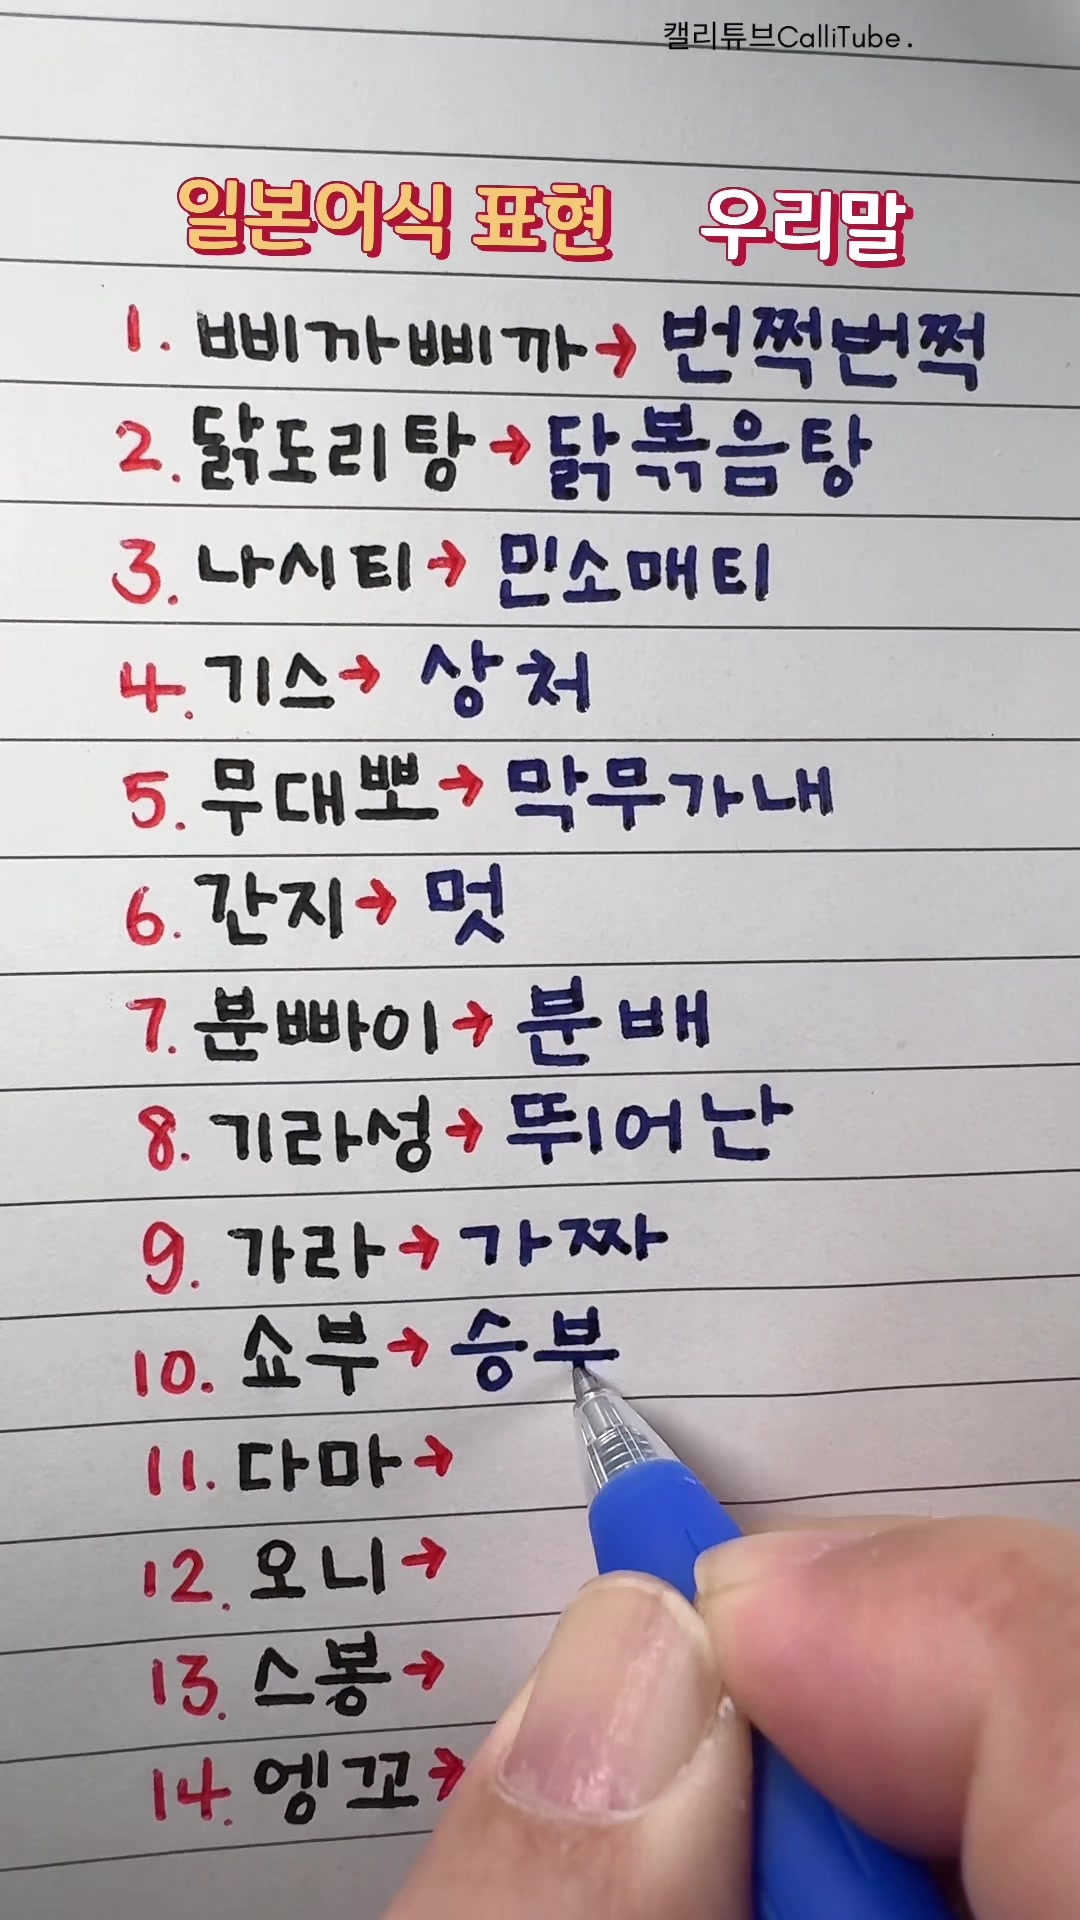 캘리튜브CalliTube.
일본어식 표현 우리말
1. 삐까삐까→번쩍번쩍
2. 닭도리탕→닭볶음탕
3. 나시티→민소매티
4. 기스→상처
5. 무대뽀→막무가내
6. 간지→멋
7. 분빠이→분배
8. 기라성→뛰어난
9. 가라→가짜
10. 쇼부→승부
11. 다마→
12. 오니→
13. 스봉→
14. 엥꼬→